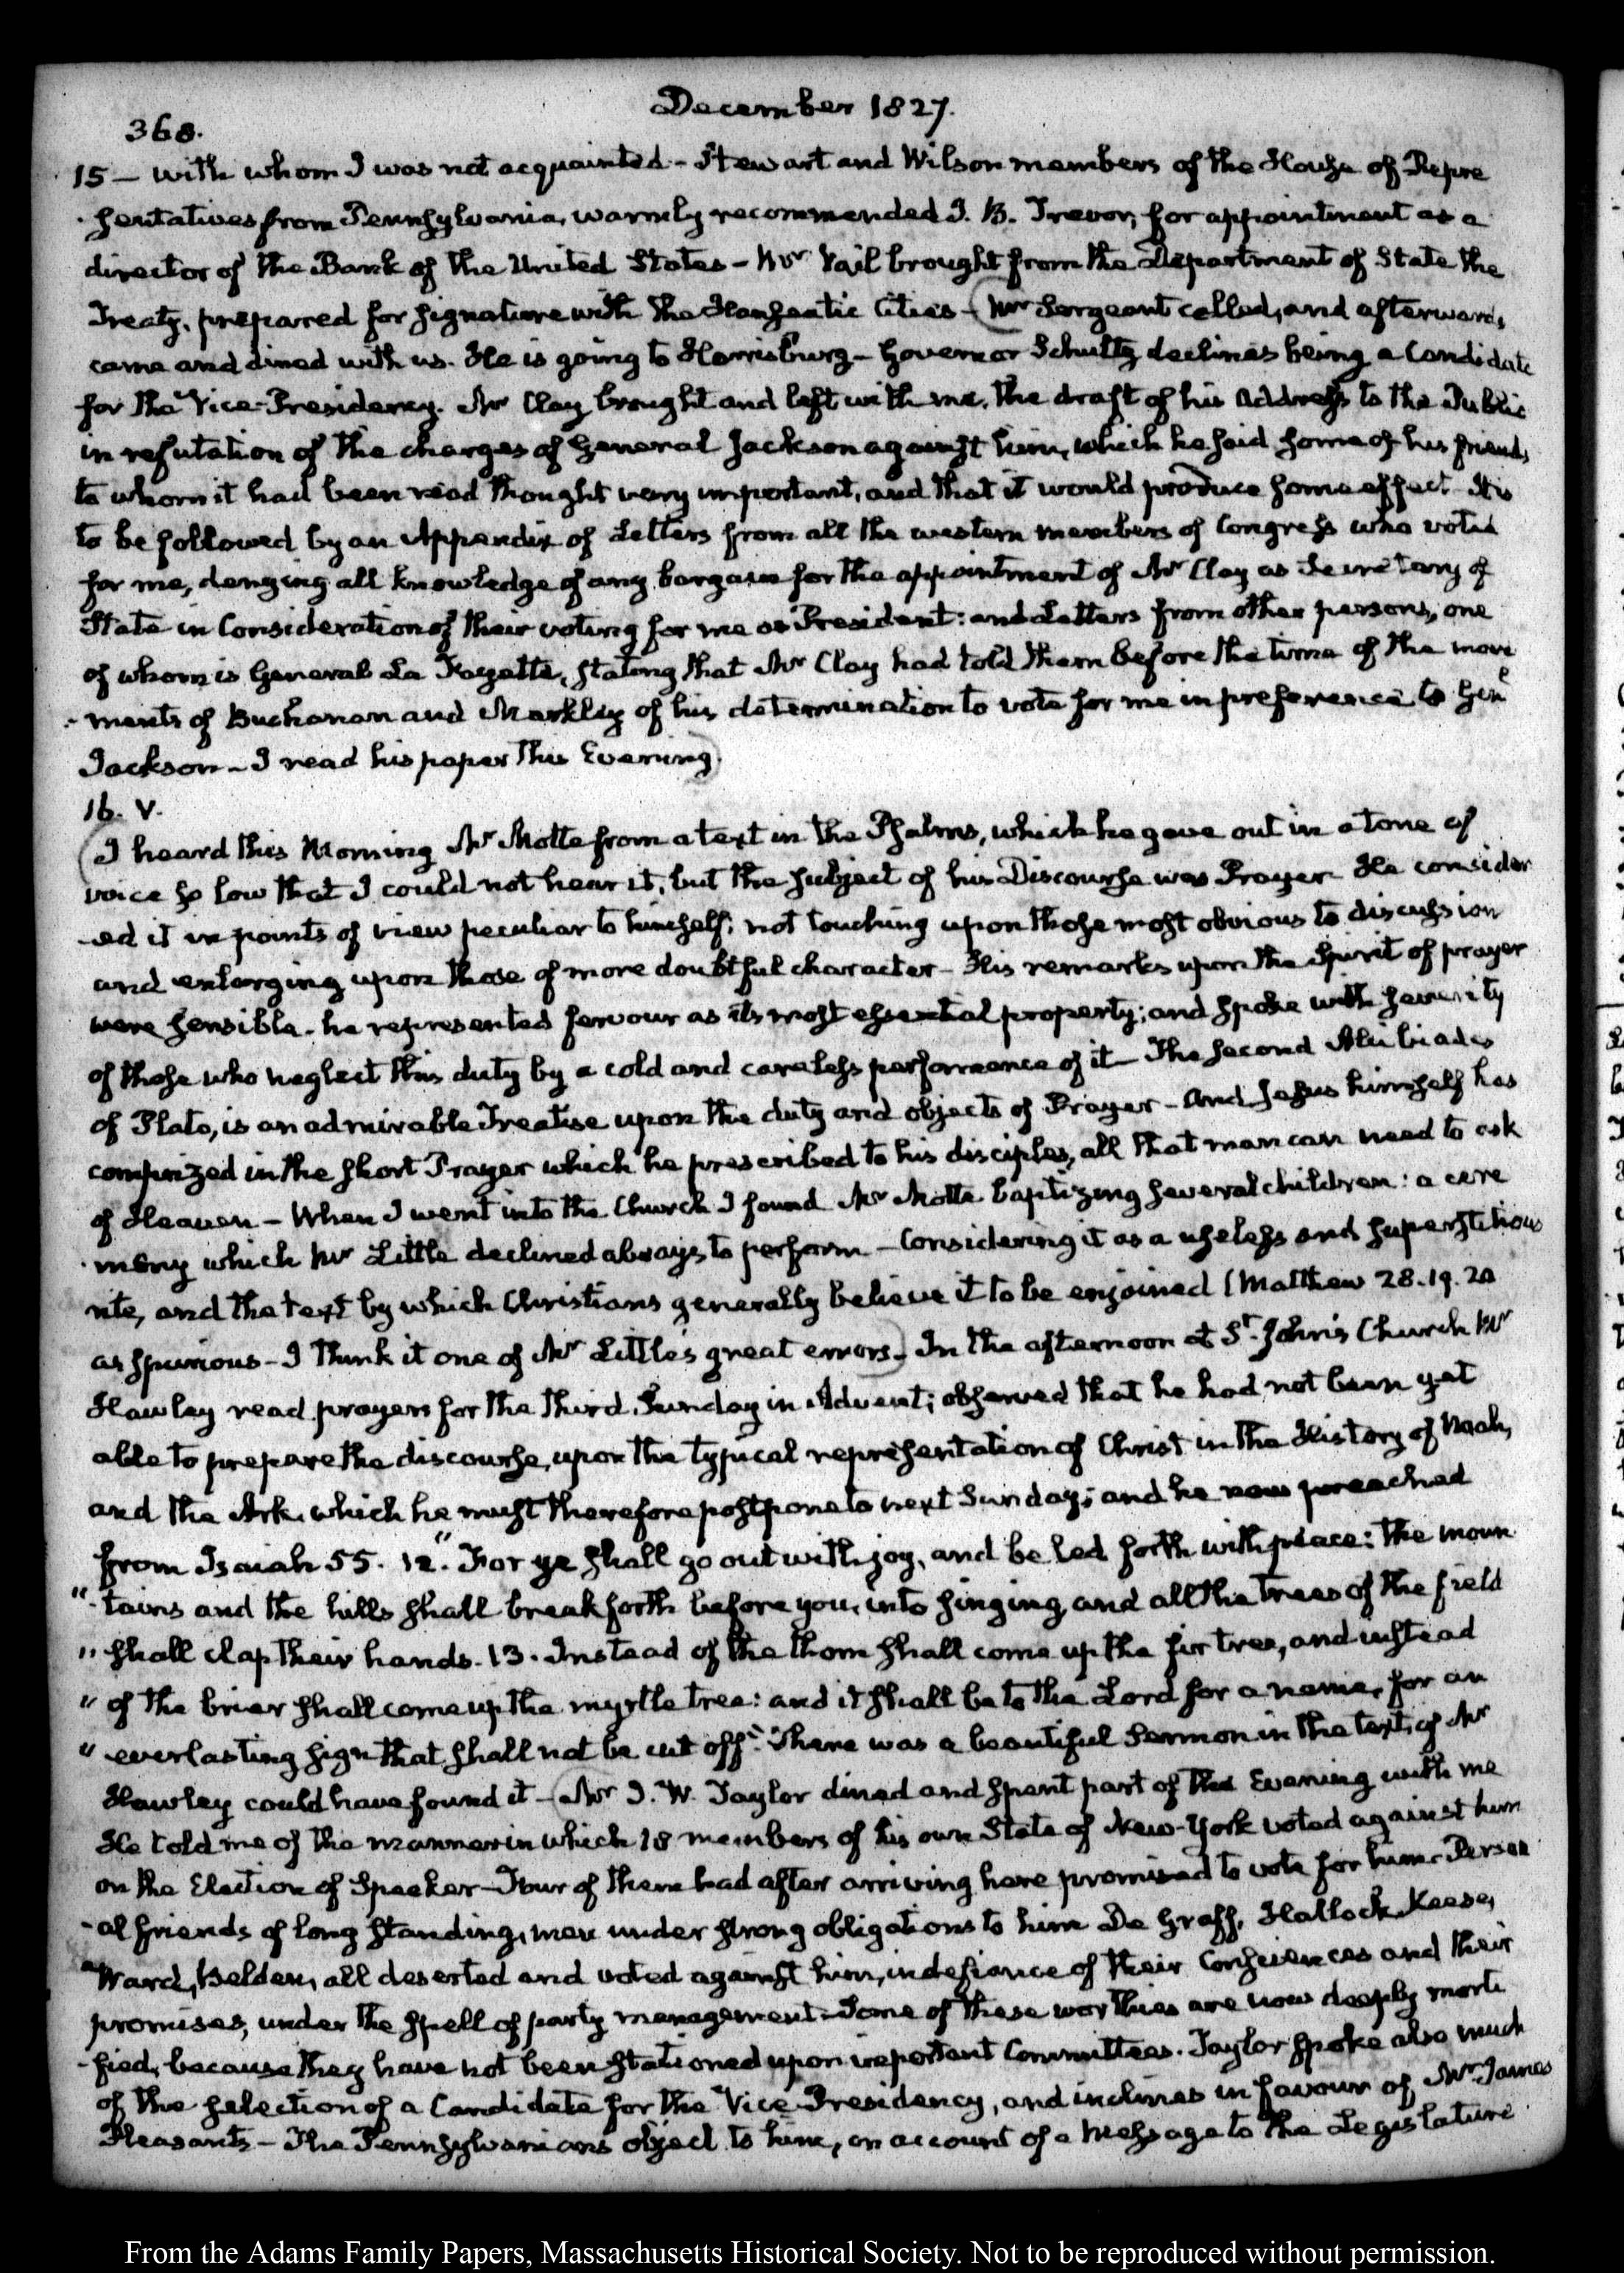 December 1827.
368.
15 — with whom I was not acquainted - Stewart and Wilson members of the House of Repre
-sentatives from Pennsylvania, warmly recommended J. B. Trevor, for appointment as a
director of the Bank of the United States - Mr Vail brought from the Department of State the
Treaty, prepared for signature with the Hanseatic Cities - (Mr Sergeant called, and afterwards
came and dined with us. He is going to Harrisburg - Governor Schultz declines being a Candidate
for the Vice-Presidency. Mr Clay brought and left with me, the draft of his Address to the Public
in refutation of the charges of General Jackson against him, which he said some of his friends
to whom it had been read thought very important, and that it would produce some effect - It is
to be followed by an Appendix of Letters from all the western members of Congress who voted
for me, denying all knowledge of any bargain for the appointment of Mr Clay as Secretary of
State in Consideration of their voting for me as President: and Letters from other persons, one
of whom is General La Fayette, stating that Mr Clay had told them before the time of the move
-ments of Buchanan and Markley of his determination to vote for me in preference to Genl
Jackson - I read his paper this Evening)
16. V.
(I heard this Morning Mr Motte from a text in the Psalms, which he gave out in a tone of
voice so low that I could not hear it, but the subject of his Discourse was Prayer - He consider
-ed it in points of view peculiar to himself; not touching upon those most obvious to discussion
and enlarging upon those of more doubtful character - His remarks upon the Spirit of prayer
were sensible - he represented fervour as its most essential property; and spoke with severity
of those who neglect this duty by a cold and careless performance of it - The second Alcibiades
of Plato, is an admirable Treatise upon the duty and objects of Prayer - And Jesus himself has
comprized in the short Prayer which he prescribed to his disciples, all that man can need to ask
of Heaven - When I went into the Church I found Mr Motte baptizing several children: a cere
-mony which Mr Little declined always to perform - Considering it as a useless and superstitious
rite, and the text by which Christians generally believe it to be enjoined (Matthew 28.19.20
as spurious - I think it one of Mr Little's great errors.) In the afternoon at St. John's Church Mr
Hawley read prayers for the third Sunday in Advent; observed that he had not been yet
able to prepare the discourse, upon the typical representation of Christ in the History of Noah,
and the Ark, which he must therefore postpone to next Sunday; and he now preached
from Isaiah 55. 12. "For ye shall go out with joy, and be led forth with peace: the moun
"-tains and the hills shall break forth before you, into singing, and all the trees of the field
"shall clap their hands. 13. Instead of the thorn shall come up the fir tree, and instead
"of the briar shall come up the myrtle tree: and it shall be to the Lord for a name, for an
"everlasting sign that shall not be cut off." There was a beautiful Sermon in the text, if Mr
Hawley could have found it - (Mr J. W. Taylor dined and spent part of the Evening with me
He told me of the manner in which 18 members of his own State of New-York voted against him
on the Election of Speaker - Four of them had after arriving here promised to vote for him - Person
-al friends of long standing, men under strong obligations to him De Graff, Hallock, Keese,
Ward, Belden, all deserted and voted against him, in defiance of their Consciences and their
promises, under the spell of party management - Some of these worthies are now deeply morti
-fied, because they have not been stationed upon important Committees. Taylor spoke also much
of the selection of a Candidate for the Vice-Presidency, and inclines in favour of Mr James
Pleasants - The Pennsylvanians object to him, on account of a Message to the Legislature
From the Adams Family Papers, Massachusetts Historical Society. Not to be reproduced without permission.